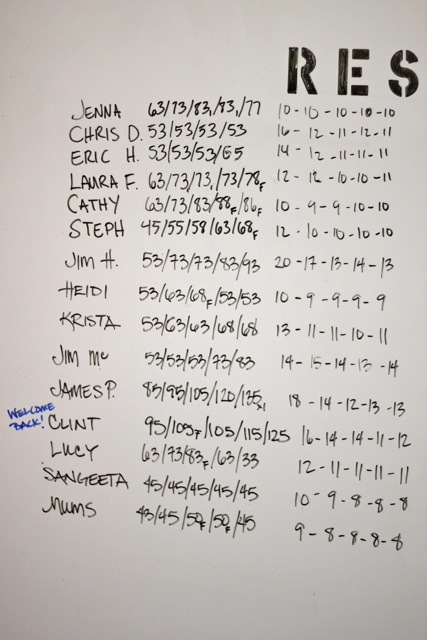 RES
JENNA 63/73/83/73/77 10-10-10-10-10
CHRIS D. 53/53/53/53 16-12-11-12-11
ERIC H. 53/53/53/65 14-12-11-11-11
LAURA F. 63/73/73/73/78F 12-12-10-10-11
CATHY 63/73/83/88F/86F 10-9-9-10-10
STEPH 45/55/58/63/68F 12-10-10-10-10
JIM H. 53/73/73/83/93 20-17-13-14-13
HEIDI 53/63/68F/53/53 10-9-9-9-9
KRISTA 53/63/63/68/68 13-11-11-10-11
JIM Mc 53/53/53/73/83 14-15-14-13-14
JAMES P. 85/95/105/120/135x1 18-14-12-13-13
WELCOME BACK! CLINT 95/105F/105/115/125 16-14-14-11-12
LUCY 63/73/83F/63/33 12-11-11-11-11
SANGEETA 45/45/45/45/45 10-9-8-8-8
MUMS 43/45/50F/50F/45 9-8-8-8-8